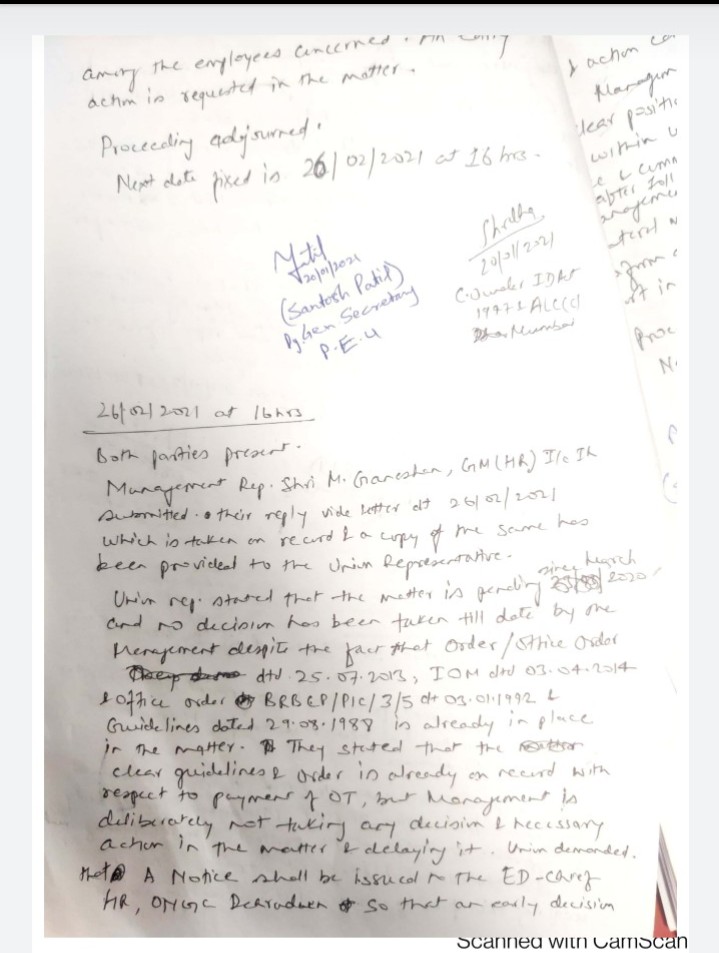 among the employees concerned. An early
action is requested in the matter.
Proceeding adjourned.
Next date fixed is 26/02/2021 at 16 hrs.
Patil
20/01/2021
(Santosh Patil)
Dy. Gen Secretary
P.E.U
20/01/2021
C.O under ID Act
1947 & ALC(C)
Mumbai
action
Managem
clear positi
within
after
Proc
26/02/2021 at 16hrs
Both parties present.
Management Rep. Shri M. Ganeshan, GM(HR) I/c IR
submitted their reply vide letter dt 26/02/2021
which is taken on record & a copy of the same has
been provided to the Union Representative.
since March
Union rep. stated that the matter is pending 2020
and no decision has been taken till date by the
Management despite the fact that Order/Office Order
dtd. 25.07.2013, IOM dtd 03.04.2014
& office order BRBCP/PIC/3/5 dt 03.01.1992 &
Guidelines dated 29.08.1988 is already in place
in the matter. They stated that the
clear guidelines & order is already on record with
respect to payment of OT, but Management is
deliberately not taking any decision & necessary
action in the matter & delaying it. Union demanded.
that A Notice shall be issued to the ED-Chief
HR, ONGC Dehradun so that an early decision
Scanned with CamScan